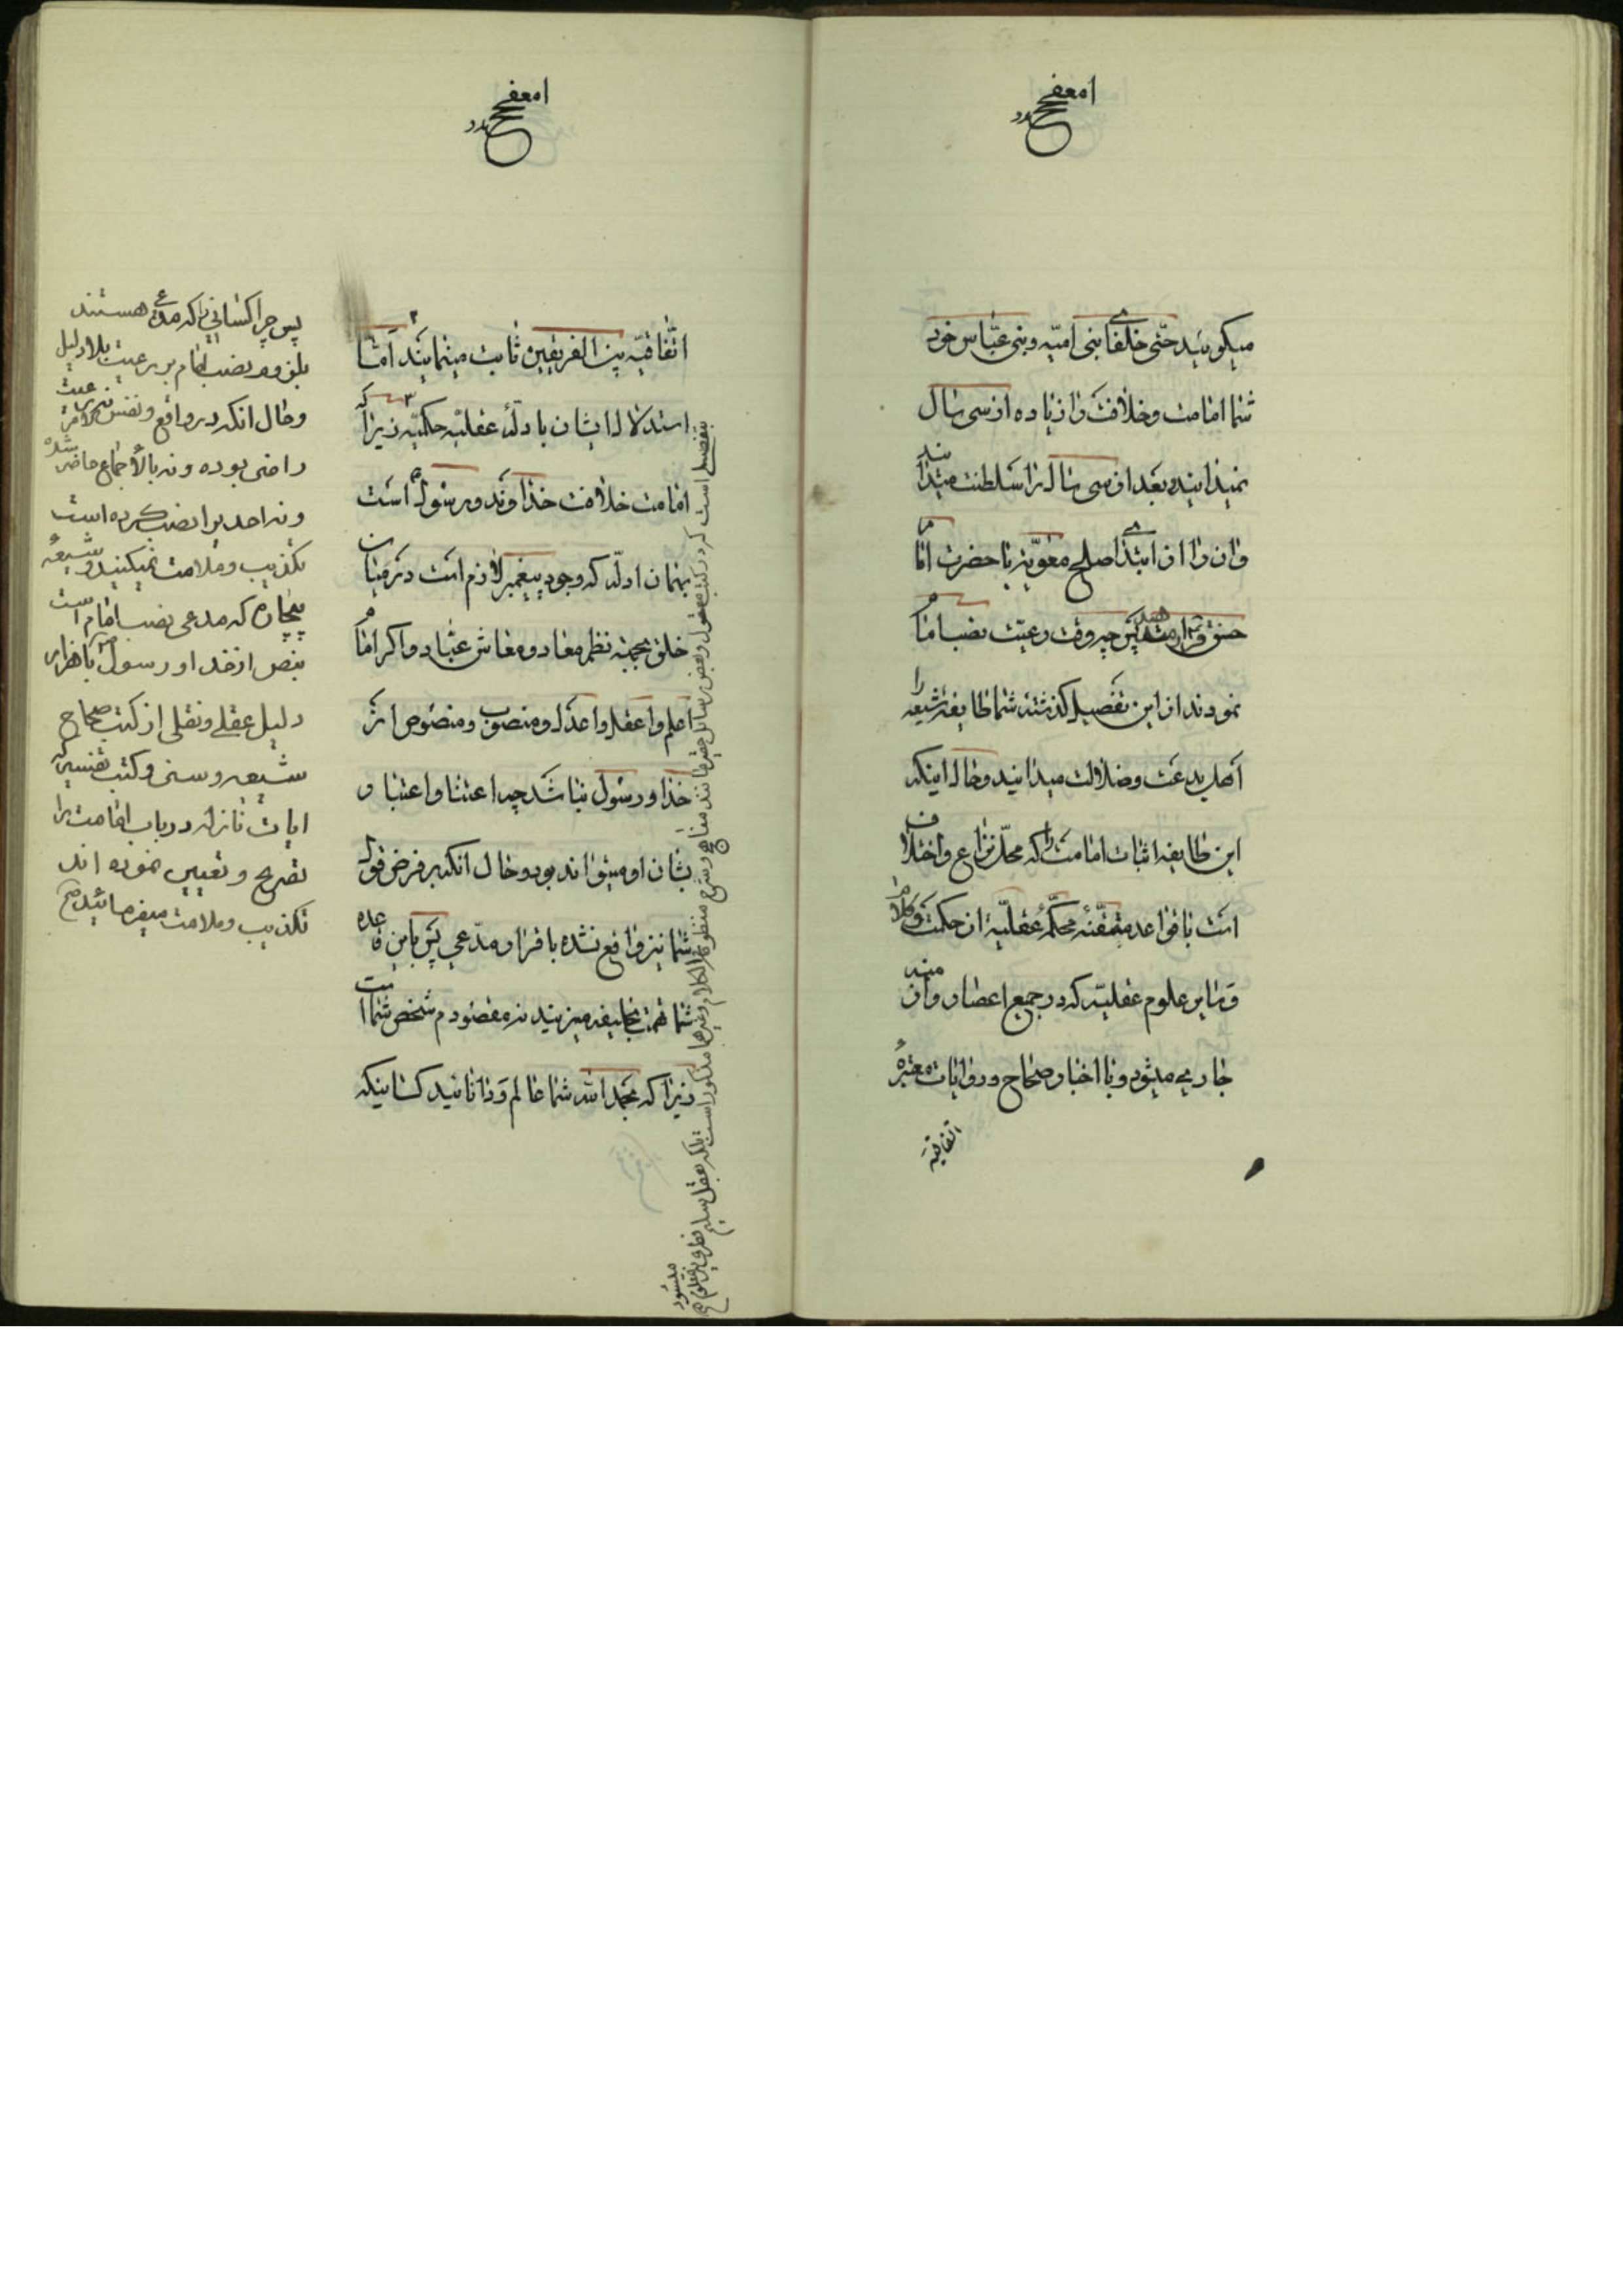 میکویند حتی خلفای بنی امیه و بنی عباس خود
شما امامت و خلافت را زیاده از سی سال
نمیدانید و بعد از سی سال را سلطنت میدانید
و ان را از ابتدای صلح معویه با حضرت امام
حسن قرار میدهید پس چه وقت رعیت نصب امام
نمودند از این تفصیل کذشته شما طایفه شیعه را
اهل بدعت و ضلالت میدانید و حال اینکه
این طایفه اثبات امامت را که محل نزاع و اختلاف
است با قواعد متقنه محکمه عقلیه از حکمت و کلام
و سایر علوم عقلیه که در جمیع اعصار و ازمنه
جاری میشود و با اخبار صحاح و روایات معتبره
اتفاقیه
اتفاقیه بین الفریقین ثابت مینمایند اما
استدلال ایشان بادله عقلیه حکمیه زیرا که
امامت خلافت خداوند و رسول است
بهمان ادله که وجود پیغمبر لازم است در میان
خلق بجهة نظم معاد و معاش عباد و اکر امام
اعلم و اعقل و اعدل و منصوب و منصوص از
خدا و رسول نباشد چه اعتنا و اعتبار
بشان او میتواند بود و حال انکه بر فرض قول
شما نیز واقع نشده باقرار مدعی پس باین قاعده
شما تهمت بخلیفه میزنید نه مقصودم شخص شما است
زیرا که بحمد الله شما عالم و دانائید کسانیکه
بتفصیلی است که در کتب معقول و بعض رسائل حقیر مانند مفتاح و شرح منظومه الکلام و غیرها مذکور است بلکه عقل سلیم
میشود
پس چرا کسانی را که مدعی هستند
و نصب امام بر رعیت بلا دلیل
و حال انکه در واقع و نفس الامر نه رعیت
راضی بوده و نه بالاجماع حاضر شده
و نه احدیرا نصب کرده است
تکذیب و ملامت نمیکنید و شیعه
بیچاره که مدعی نصب امام است
بنص از خدا و رسول با هزار
دلیل عقلی و نقلی از کتب صحاح
شیعه و سنی و کتب تفسیر که
ایات نازله در باب امامت را
تصریح و تعیین نموده اند
تکذیب و ملامت میفرمائید صح